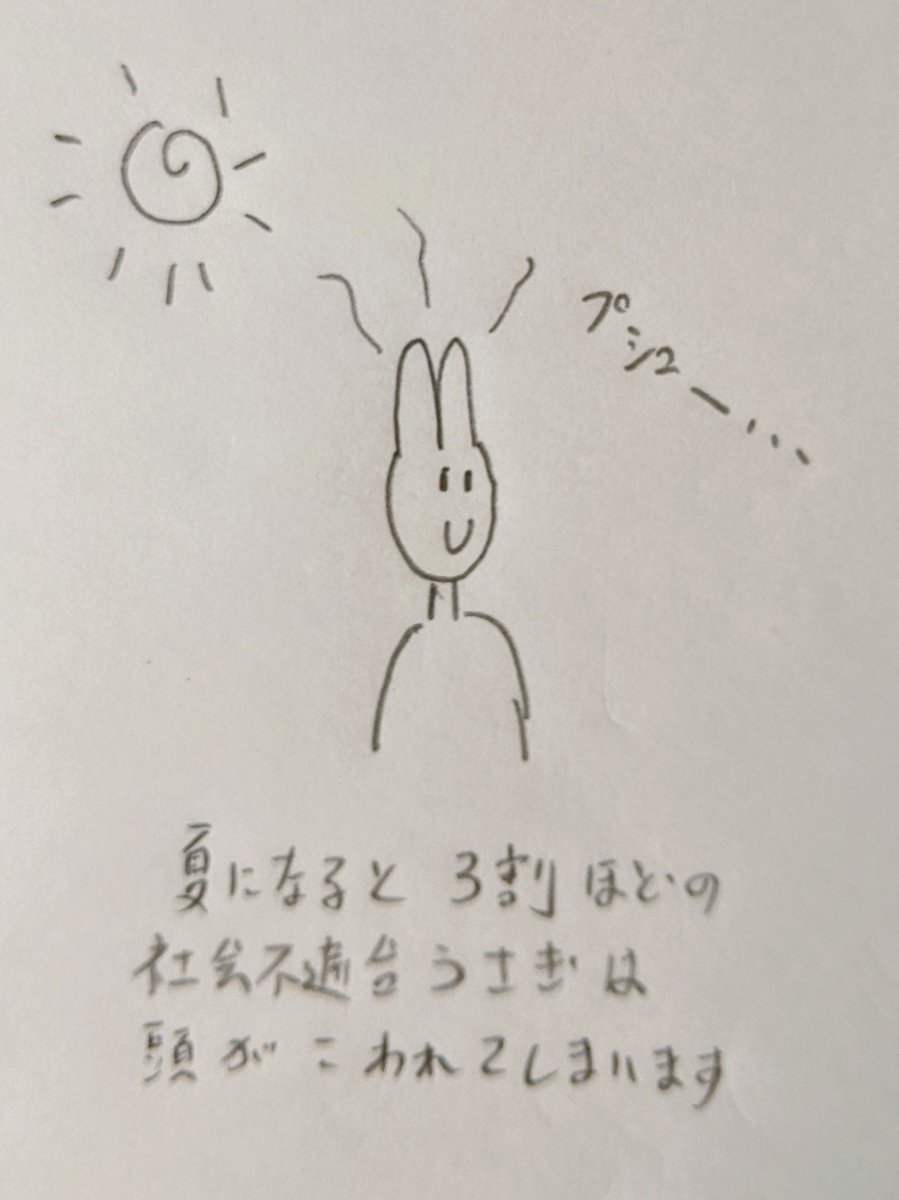 プシュー...
夏になると 3割ほどの
社会不適合うさぎは
頭がこわれてしまいます